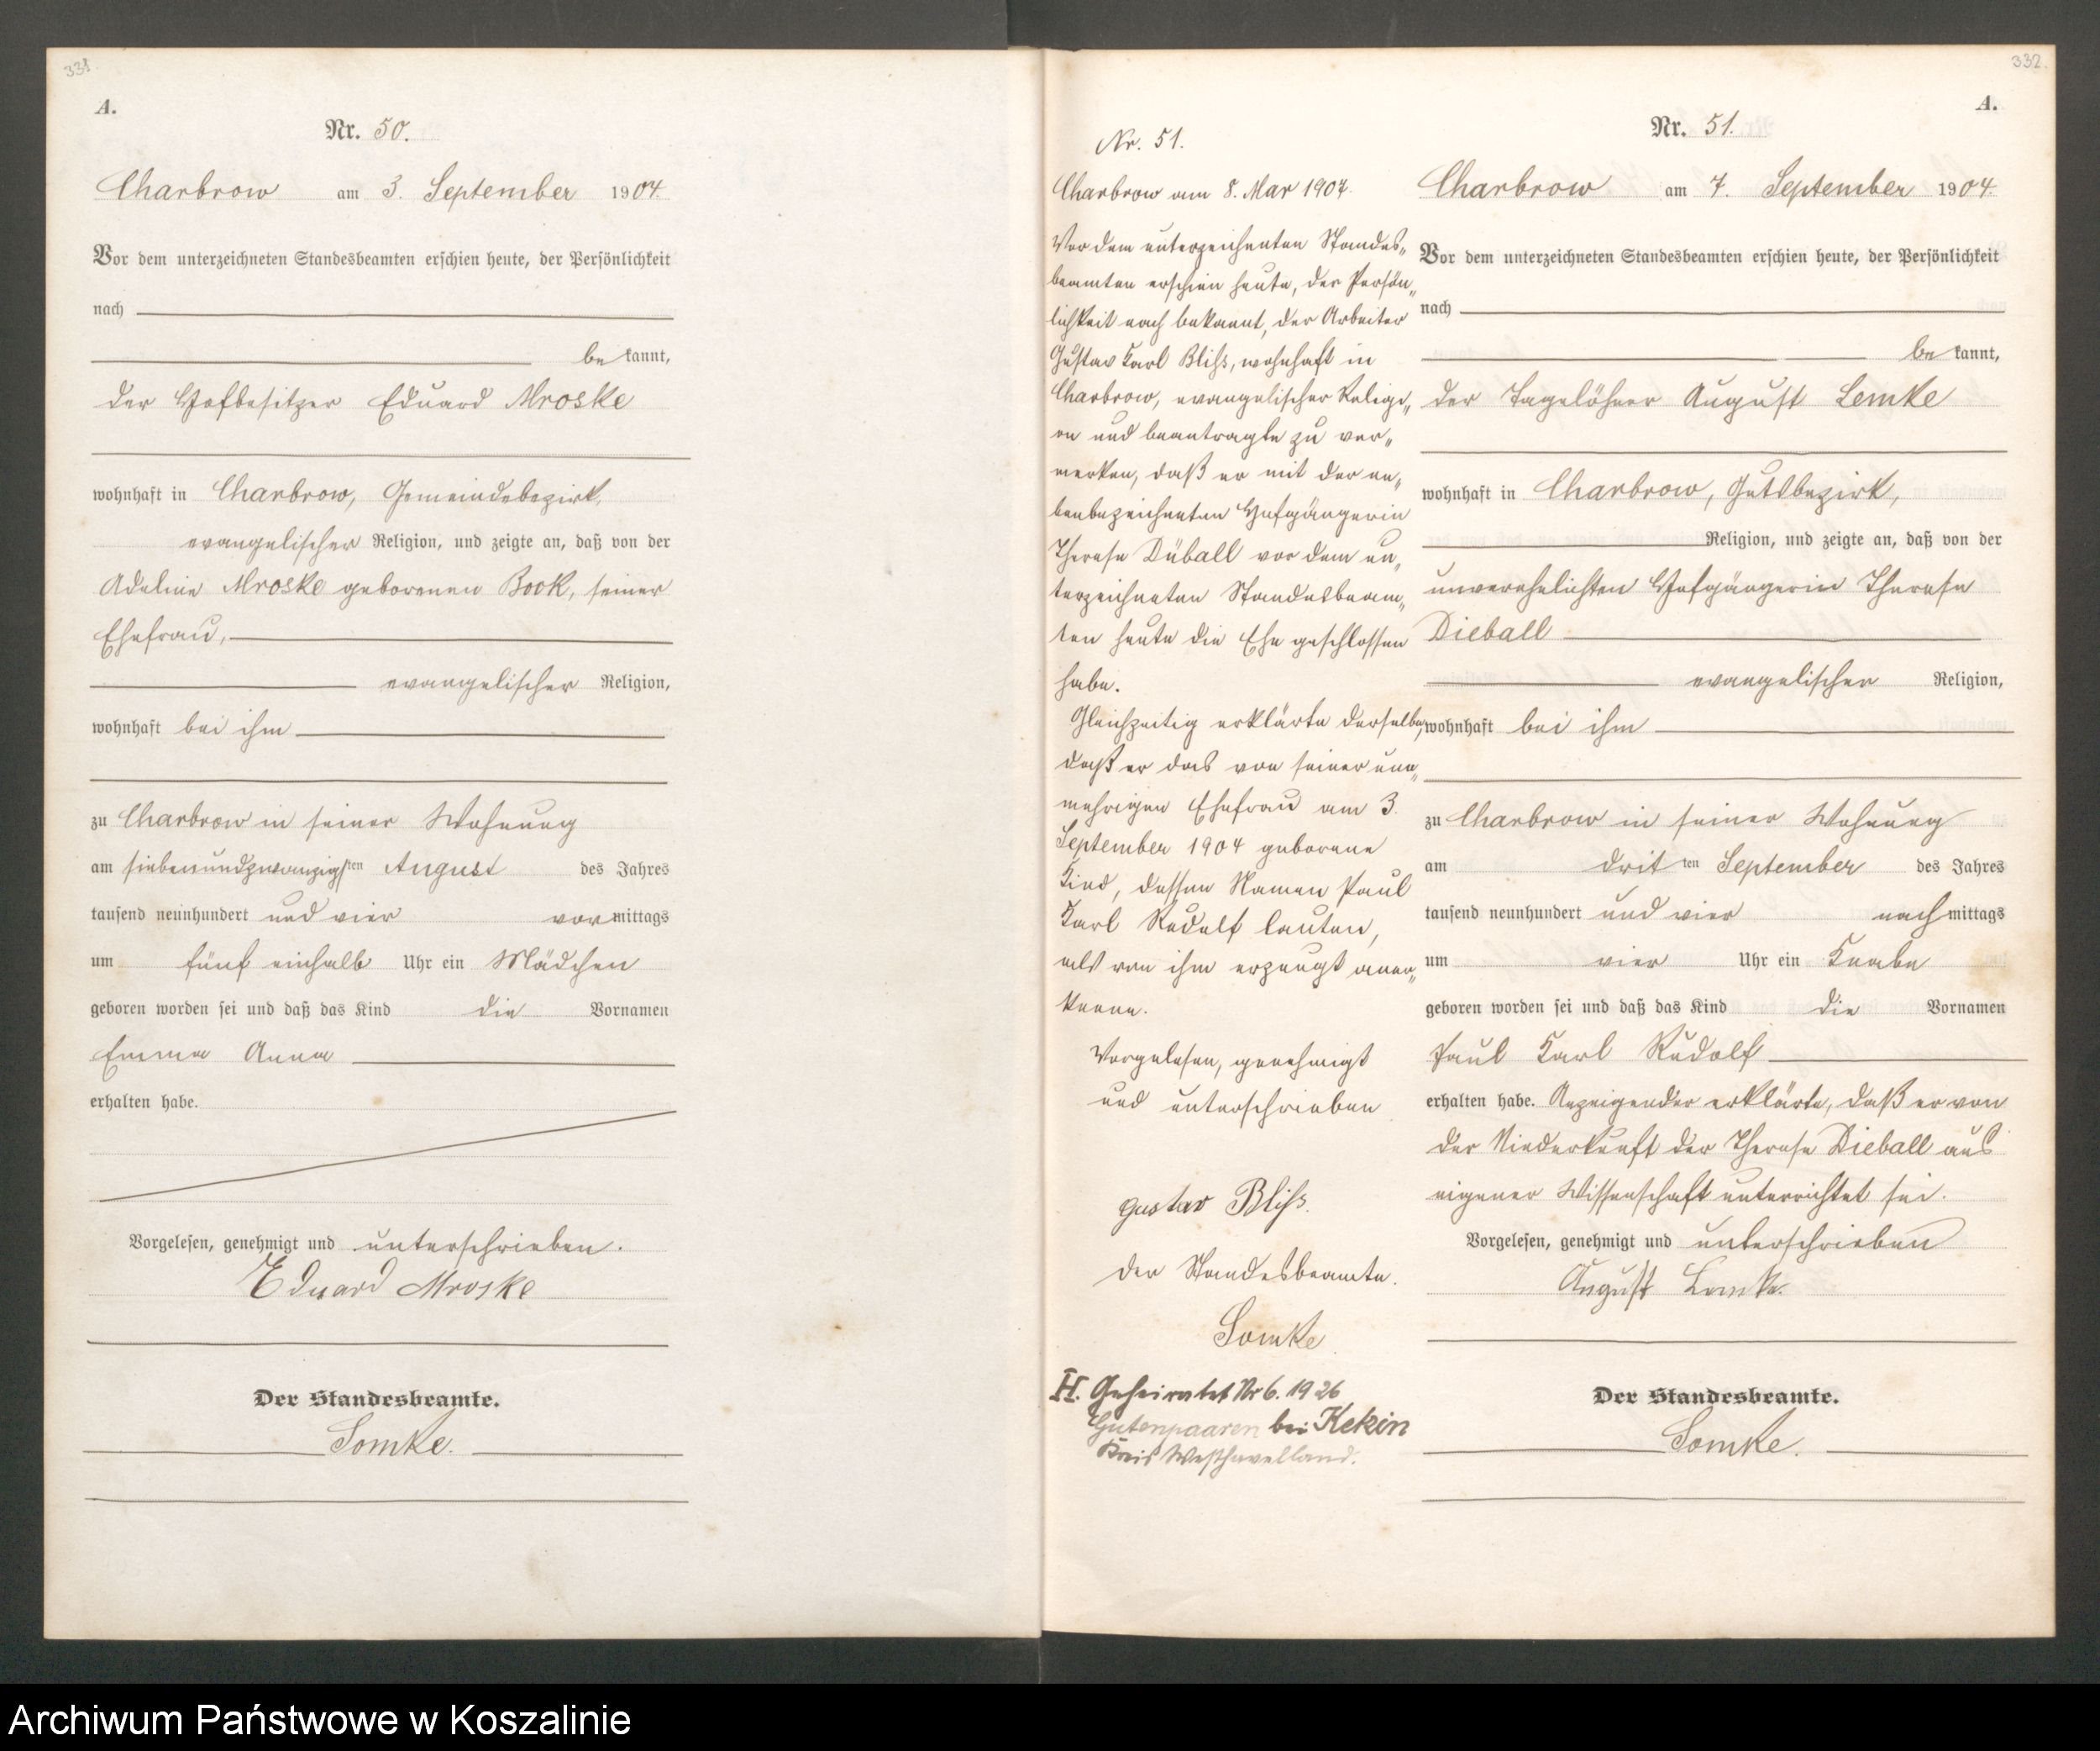 331.
A.
Nr. 50.
Charbrow am 3. September 1904.
Vor dem unterzeichneten Standesbeamten erschien heute, der Persönlichkeit
nach
be kannt,
der Hofbesitzer Eduard Mroske
wohnhaft in Charbrow, Gemeindebezirk,
evangelischer Religion, und zeigte an, daß von der
Adeline Mroske geborenen Book, seiner
Ehefrau,
evangelischer Religion,
wohnhaft bei ihm
zu Charbrow in seiner Wohnung
am siebenundzwanzigsten August des Jahres
tausend neunhundert und vier vormittags
um fünf einhalb Uhr ein Mädchen
geboren worden sei und daß das Kind die Vornamen
Emma Anna
erhalten habe.
Vorgelesen, genehmigt und unterschrieben.
Eduard Mroske
Der Standesbeamte.
Lomke.
Nr. 51.
Charbrow am 8. Mar 1907.
Vor dem unterzeichneten Standes„
beamten erschien heute, der Persön„
lichkeit nach bekannt, der Arbeiter
Gustav Karl Bliß, wohnhaft in
Charbrow, evangelischer Religi„
on und beantragte zu ver„
merken, daß er mit der ne„
benbezeichneten Hofgängerin
Therese Düball vor dem un„
terzeichneten Standesbeam„
ten heute die Ehe geschlossen
habe.
Gleichzeitig erklärte derselbe,
daß er das von seiner nun„
mehrigen Ehefrau am 3.
September 1904 geborene
Kind, dessen Namen Paul
Karl Rudolf lauten,
als von ihm erzeugt aner„
kenne.
Vorgelesen, genehmigt
und unterschrieben
Gustav Bliß.
Der Standesbeamte.
Lomke
H. Geheiratet Nr 6. 1926
Gutenpaaren bei Kekin
Kreis Westhavelland.
332.
A.
Nr. 51.
Charbrow am 7. September 1904.
Vor dem unterzeichneten Standesbeamten erschien heute, der Persönlichkeit
nach
be kannt,
der Tagelöhner August Lemke
wohnhaft in Charbrow, Gutsbezirk,
Religion, und zeigte an, daß von der
unverehelichten Hofgängerin Therese
Dieball
evangelischer Religion,
wohnhaft bei ihm
zu Charbrow in seiner Wohnung
am dritten September des Jahres
tausend neunhundert und vier nachmittags
um vier Uhr ein Knabe
geboren worden sei und daß das Kind die Vornamen
Paul Karl Rudolf
erhalten habe. Anzeigender erklärte, daß er von
der Niederkunft der Therese Dieball aus
eigener Wissenschaft unterrichtet sei.
Vorgelesen, genehmigt und unterschrieben
August Lemke.
Der Standesbeamte.
Lomke.
Archiwum Państwowe w Koszalinie